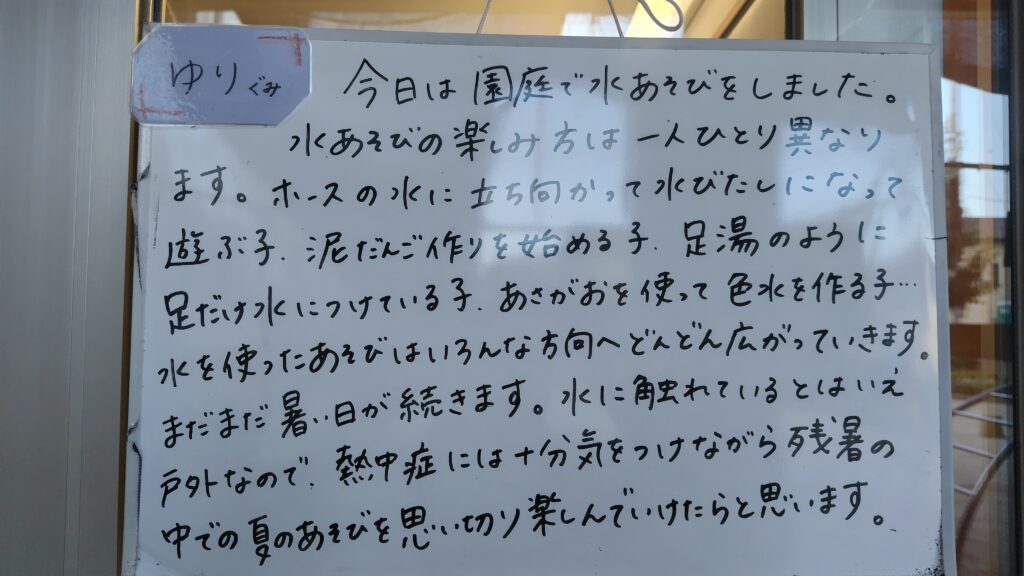 ゆりぐみ
今日は園庭で水あそびをしました。
水あそびの楽しみ方は一人ひとり異なり
ます。ホースの水に立ち向かって水びたしになって
遊ぶ子、泥だんご作りを始める子、足湯のように
足だけ水につけている子、あさがおを使って色水を作る子…
水を使ったあそびはいろんな方向へどんどん広がっていきます。
まだまだ暑い日が続きます。水に触れているとはいえ
戸外なので、熱中症には十分気をつけながら残暑の
中での夏のあそびを思い切り楽しんでいけたらと思います。